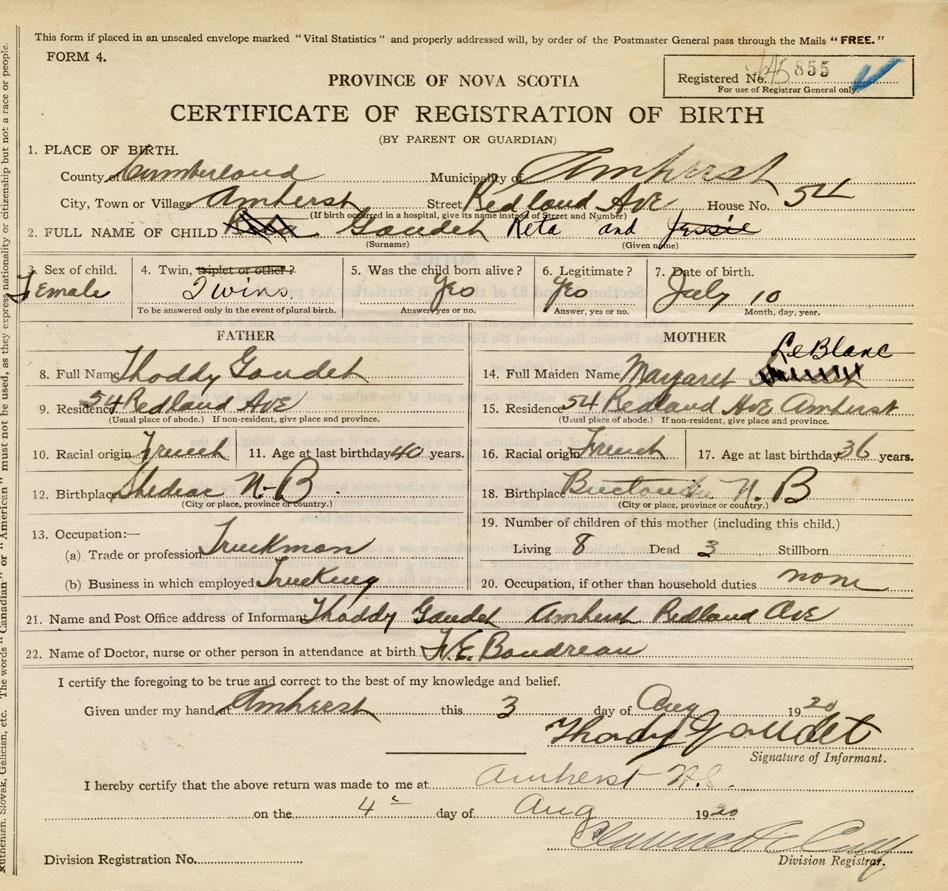 This form if placed in an unsealed envelope marked "Vital Statistics" and properly addressed will, by order of the Postmaster General pass through the Mails "FREE."
FORM 4.
Registered No. 855
For use of Registrar General only.
PROVINCE OF NOVA SCOTIA
CERTIFICATE OF REGISTRATION OF BIRTH
(BY PARENT OR GUARDIAN)
1. PLACE OF BIRTH.
County of Cumberland Municipality of Amherst
City, Town or Village Amherst Street Redland Ave House No. 54
(If birth occurred in a hospital, give its name instead of Street and Number)
2. FULL NAME OF CHILD Gaudet Reta and Jessie
(Surname) (Given name)
3. Sex of child. 4. Twin, triplet or other? 5. Was the child born alive? 6. Legitimate? 7. Date of birth.
Female Twins. Yes Yes July 10
To be answered only in the event of plural birth. Answer, yes or no. Answer, yes or no. Month, day, year.
FATHER
8. Full Name Thoddy Gaudet
9. Residence 54 Redland Ave
(Usual place of abode.) If non-resident, give place and province.
10. Racial origin French 11. Age at last birthday 40 years.
12. Birthplace Shediac N-B.
(City or place, province or country.)
13. Occupation:—
(a) Trade or profession Truckman
(b) Business in which employed Trucking
MOTHER
LeBlanc
14. Full Maiden Name Margaret
15. Residence 54 Redland Ave Amherst
(Usual place of abode.) If non-resident, give place and province.
16. Racial origin French 17. Age at last birthday 36 years.
18. Birthplace Buctouche N. B
(City or place, province or country.)
19. Number of children of this mother (including this child.)
Living 8 Dead 3 Stillborn
20. Occupation, if other than household duties none
21. Name and Post Office address of Informant Thoddy Gaudet Amherst Redland Ave
22. Name of Doctor, nurse or other person in attendance at birth. Boudreau
I certify the foregoing to be true and correct to the best of my knowledge and belief.
Given under my hand at Amherst this 3 day of Aug 1920
Thoddy Gaudet
Signature of Informant.
I hereby certify that the above return was made to me at Amherst N.S.
on the 4 day of Aug 1920
Division Registration No.
Division Registrar.
Ruthenian, Slovak, Galician, etc. The words "Canadian" or "American" must not be used, as they express nationality or citizenship but not a race or people.